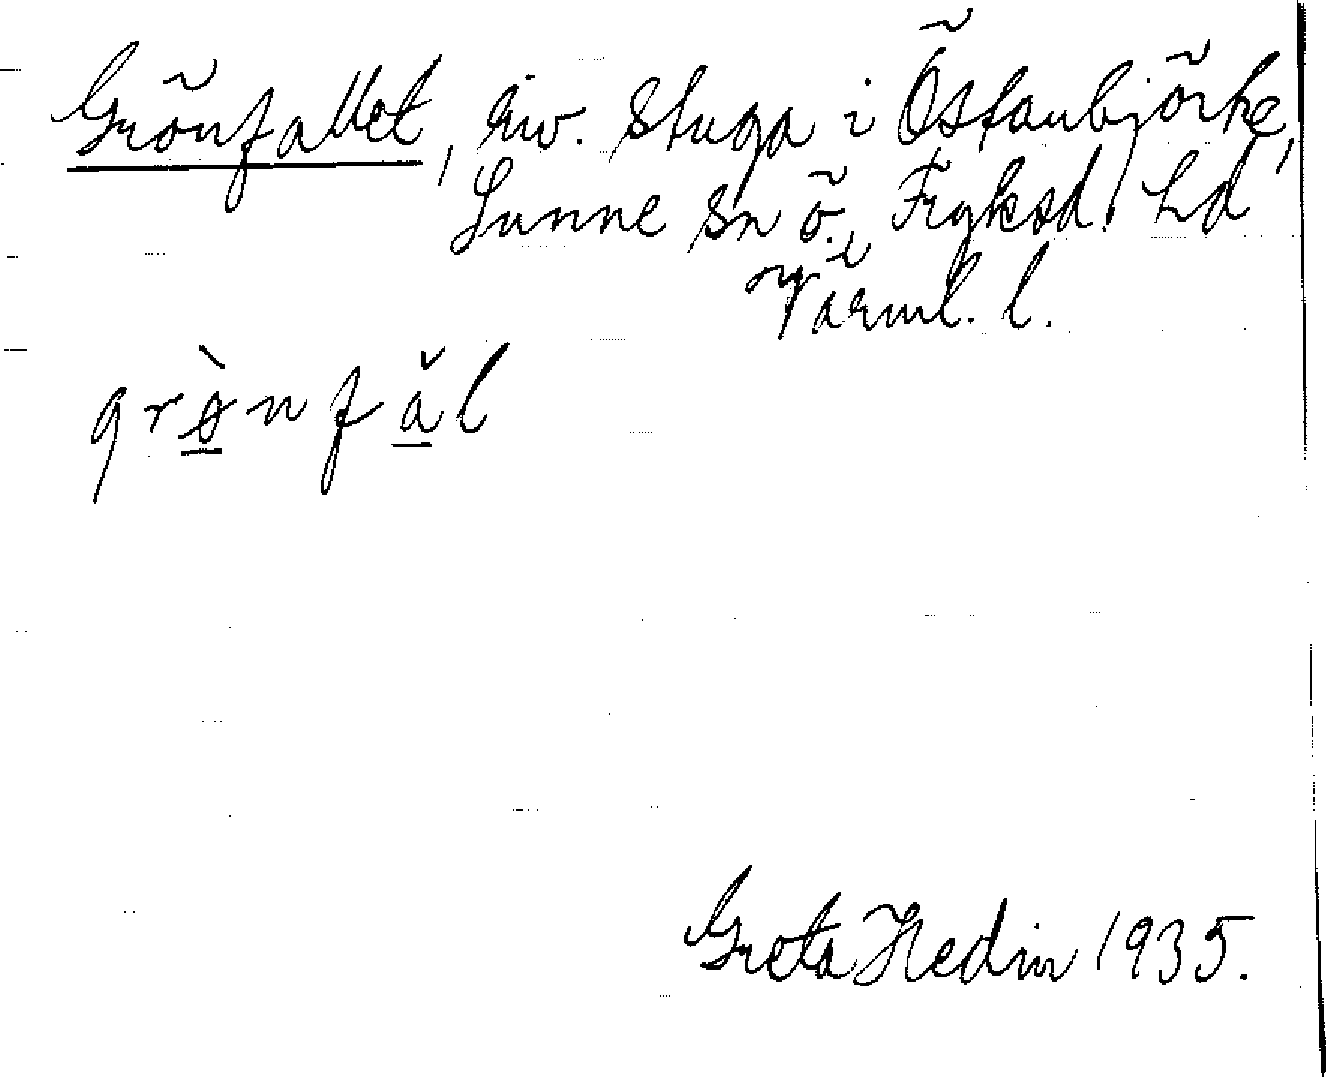 Grönfallet, riv. stuga i Östanbjörke,
Sunne sn ö., Fryksd. hd
Värml. l.
grø̀nfǎl
Greta Hedin 1935.